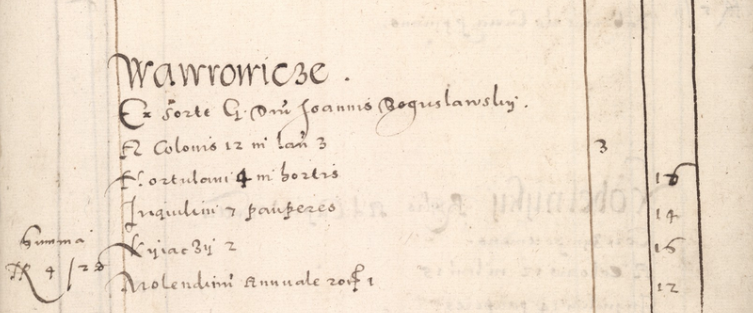 Wawrowicze .
Ex sorte G. Dni Joannis Boguslawsky .
A Colonis 12 in lan 3 3
Hortulani 4 in hortis 16
Inquilini 7 pauperes 14
Summa Kijaczy 2 16
4 / 28 Molendinu Annuale rot 1 12